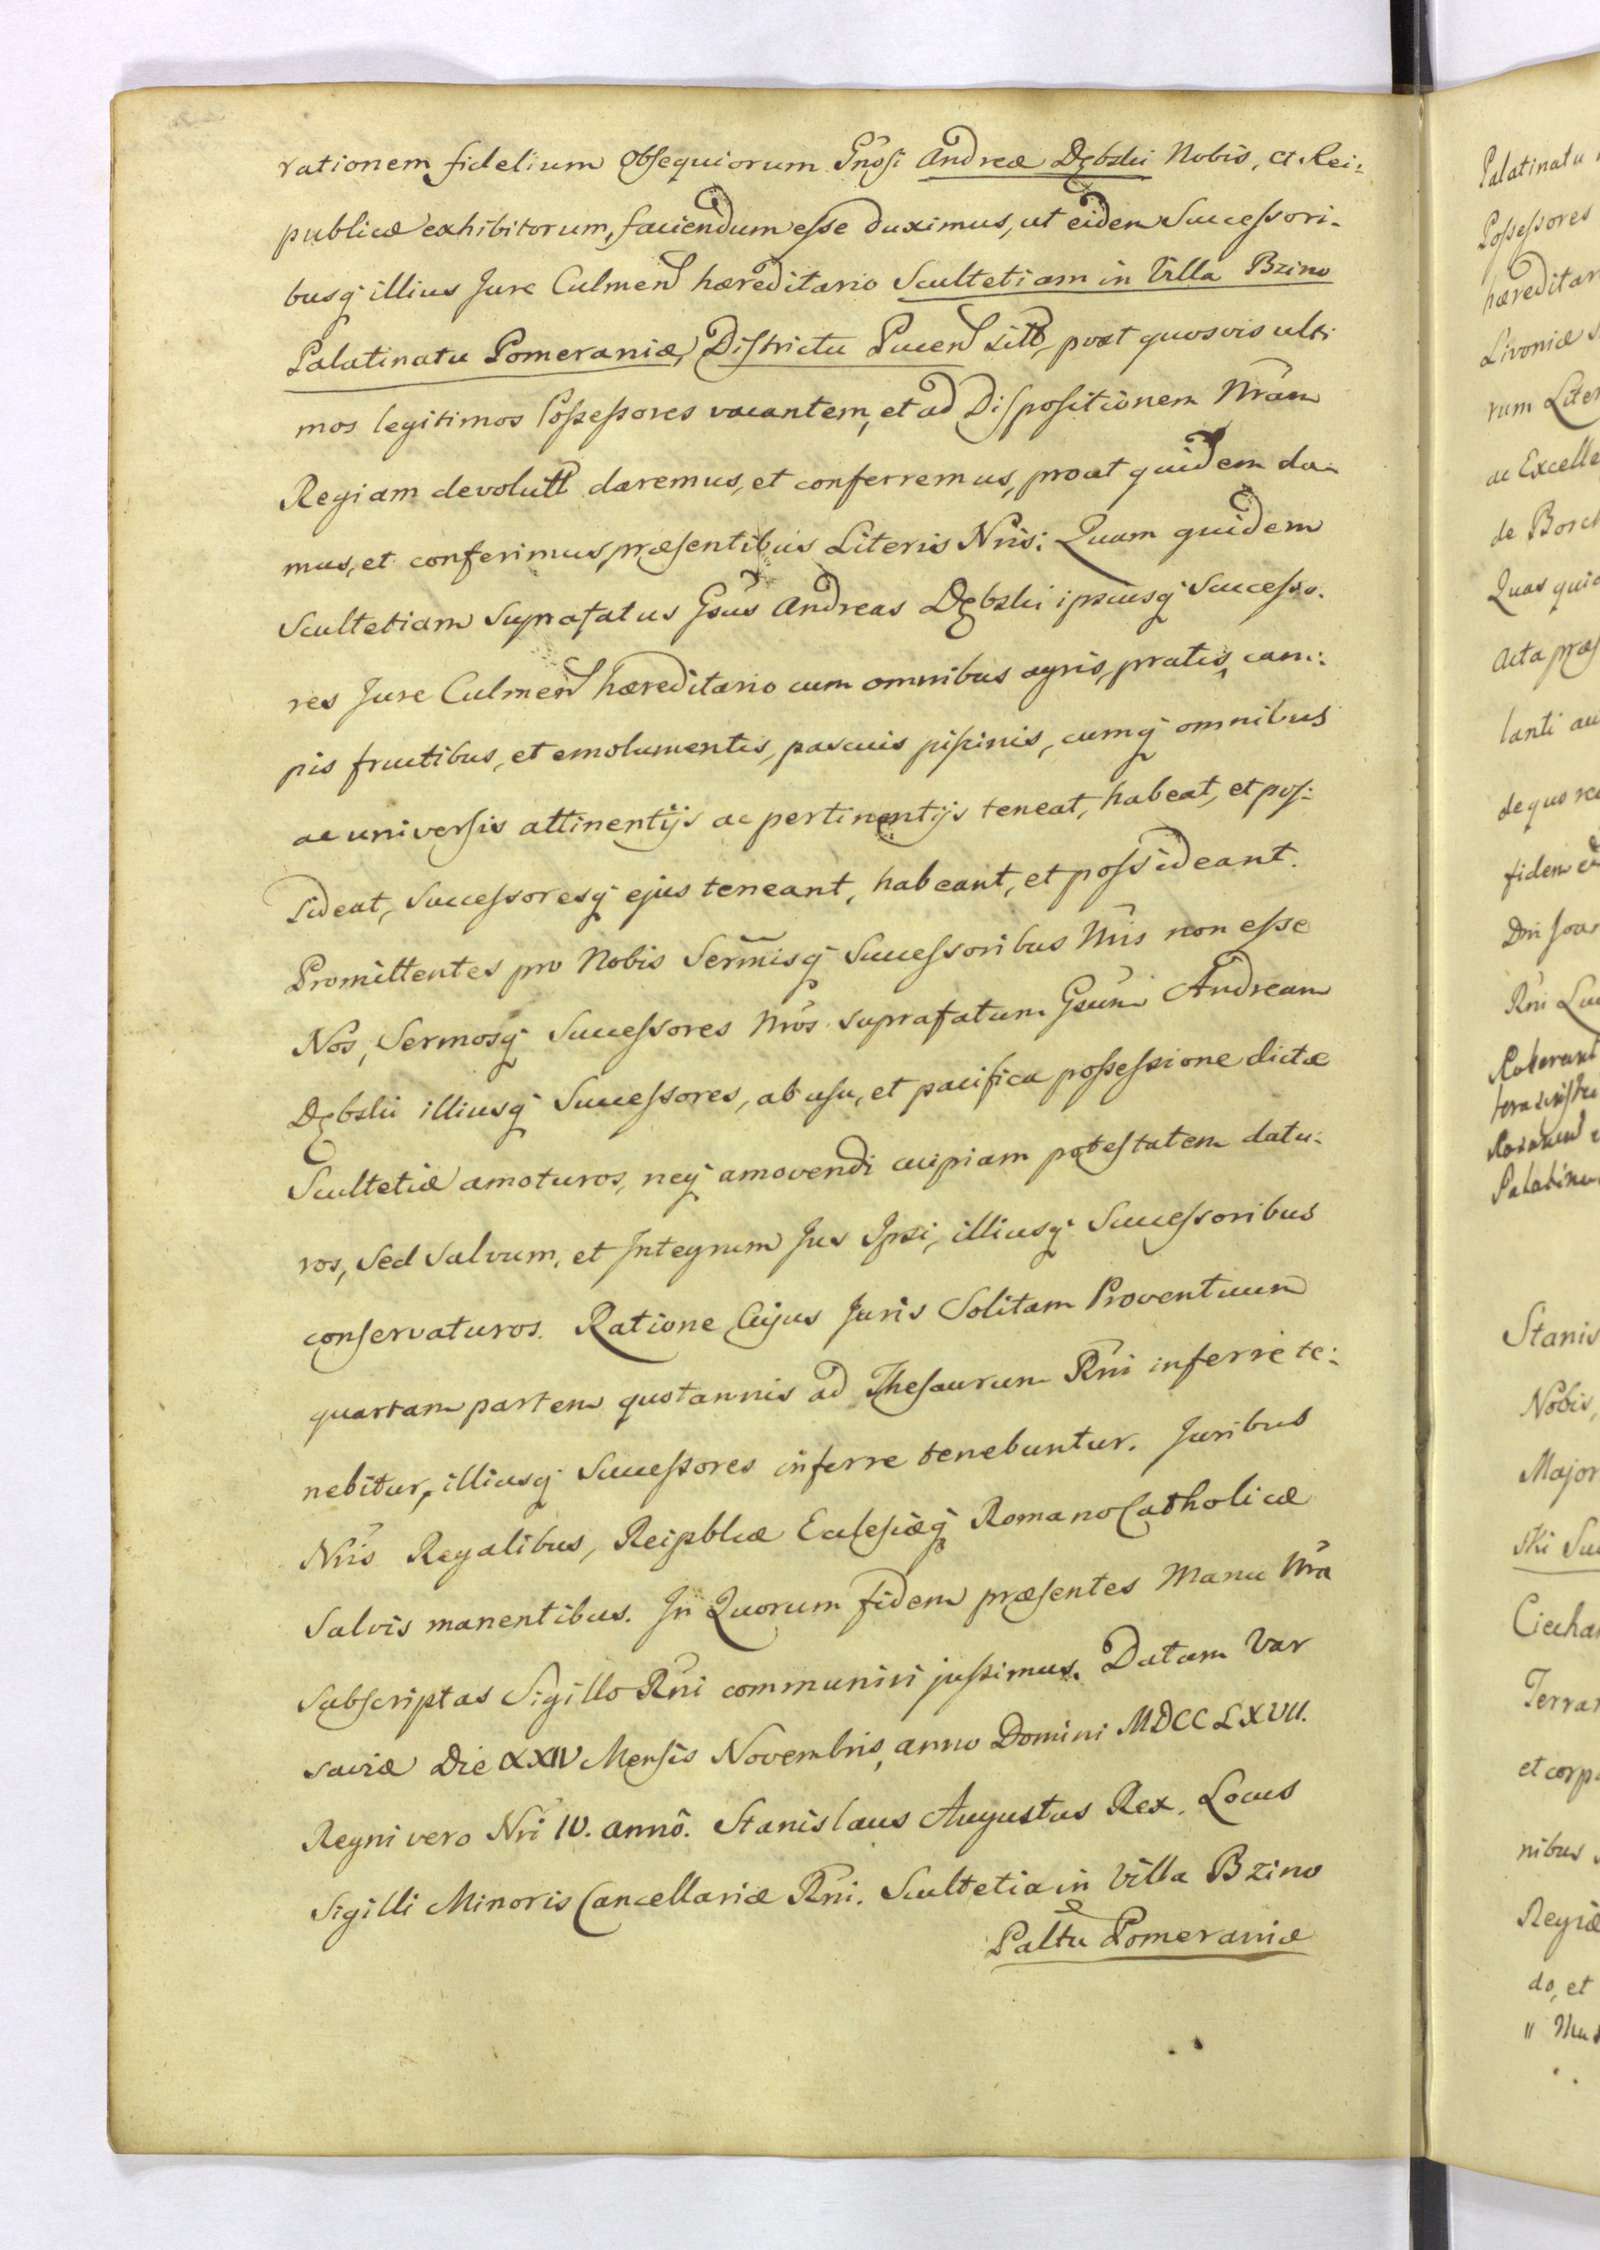 rationem fidelium Obsequiorum Gnosi Andreæ Dębski Nobis, et Rei:
publicæ exhibitorum, faciendum esse duximus, ut eidem Successori-
busq illius Jure Culmen hæreditario Scultetiam in Villa Bzino
Palatinatu Pomeraniæ, Districtu Pucen sitt, post quosvis ulti
mos legitimos Possessores vacantem, et ad Dispositionem Nram
Regiam devolutt daremus, et conferremus, proat quidem da-
mus, et conferimus præsentibus Literis Nris: Quam quidem
Scultetiam Suprafatus Gsus Andreas Dębski ipsiusq Successo-
res Jure Culmen hæreditario cum omnibus agris, pratis, cam:
pis fructibus, et emolumentis, pascuis piscinis, cumq omnibus
ac universis attinentijs ac pertinentijs teneat, habeat, et pos:
sideat, Successoresq ejus teneant, habeant, et possideant.
Promittentes pro Nobis Sermisq Successoribus Nris non esse
Nos, Sermosq Successores Nros suprafatum Gsum Andream
Dębski illiusq Successores, ab usu, et pacifica possessione dictæ
Scultetiæ amoturos, neq amovendi cuipiam potestatem datu-
ros, Sed Salvum, et Integrum Jus Ipsi, illiusq Successoribus
conservaturos. Ratione Cujus Juris Solitam Proventuum
quartam partem quotannis ad Thesaurum Rni inferre te:
nebitur, illiusq Successores inferre tenebuntur. Juribus
Nris Regalibus, Reipblcæ Eclesiæq Romano Catholicæ
Salvis manentibus. In Quorum fidem præsentes Manu Nra
Subscriptas Sigillo Rni communiri jussimus. Datam Var
saviæ Die XXIV Mensis Novembris, anno Domini MDCCLXVII.
Regni vero Nri IV. anno. Stanislaus Augustus Rex. Locus
Sigilli Minoris Cancellariæ Rni. Scultetia in Villa Bzino
Paltu Pomeraniæ
Palatinatu
Possessores
hæreditar
Livoniæ
rum Liter
ac Excelle
de Borch
Quas quid
Acta præs
lanti au
de quo re
fidem
Dni Joan
Rni
Palatinu
Stanis
Nobis,
Major
ski Su
Ciecha
Terrar
et corp
nibus
Regiæ
do, et